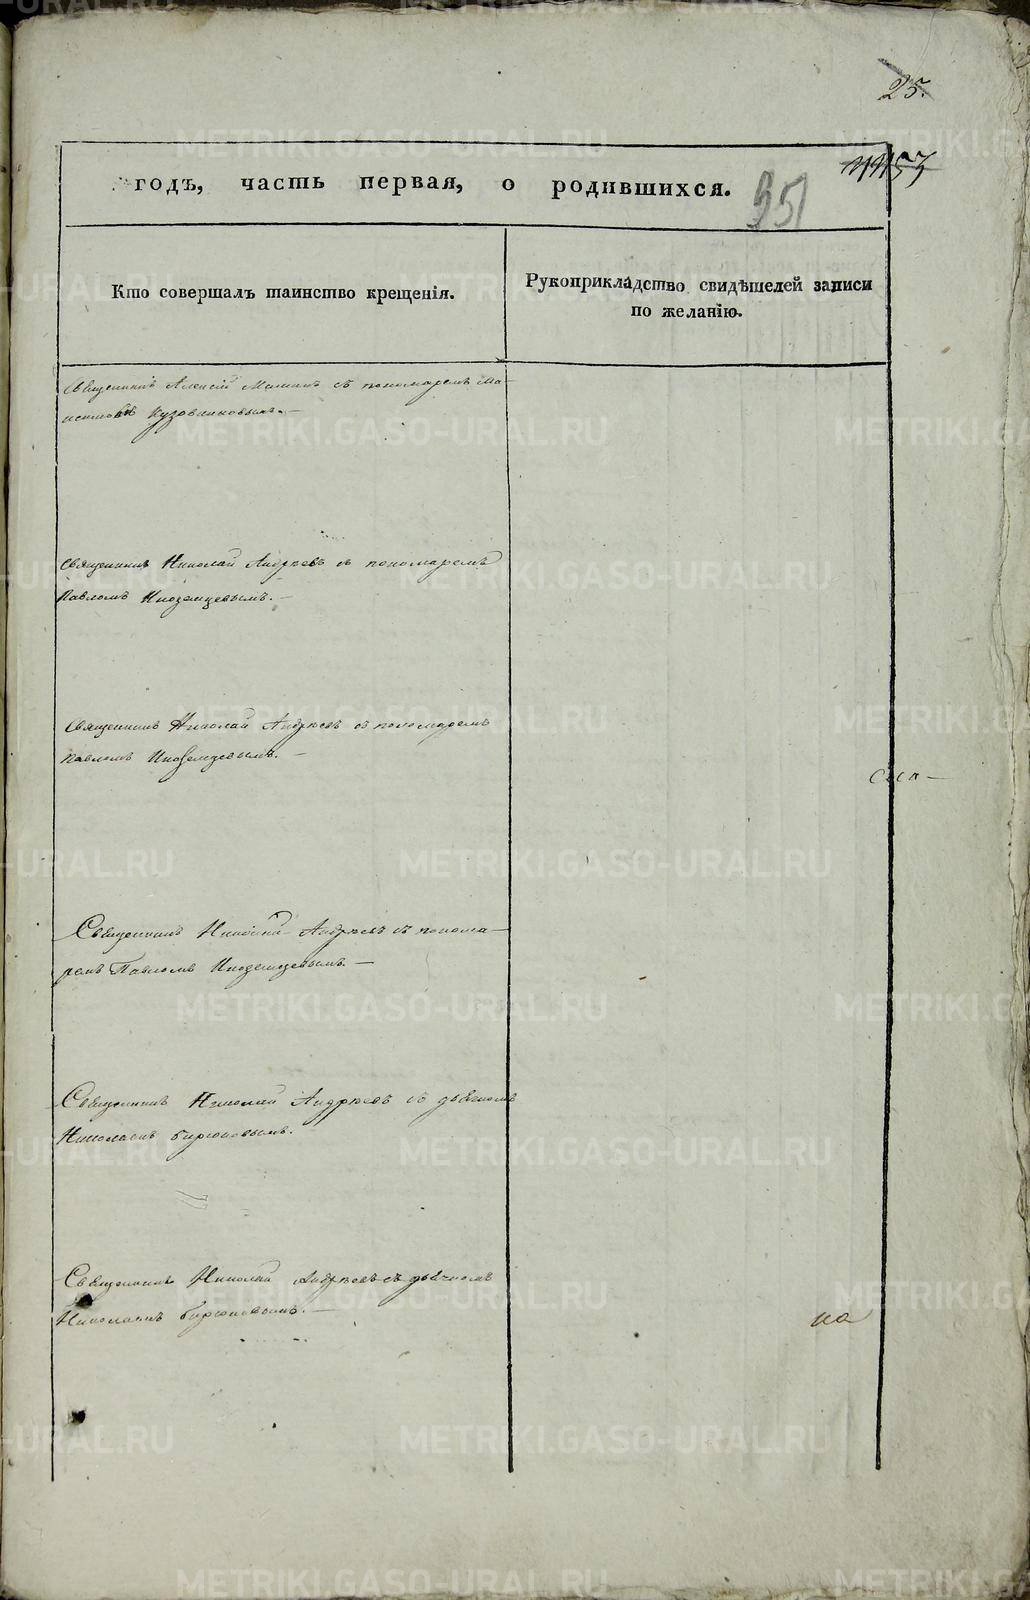 25.
годъ, часть первая, о родившихся.
95
Кто совершалъ таинство крещенія.
Рукоприкладство свидѣтелей записи
по желанію.
Священникъ Алексѣй съ пономаремъ
Кузовниковымъ.
Священникъ Николай Андреевъ съ пономаремъ
Павломъ Иноземцевымъ.
Священникъ Николай Андреевъ съ пономаремъ
Павломъ Иноземцевымъ.
Священникъ Николай Андреевъ съ понома-
ремъ Павломъ Иноземцевымъ.
Священникъ Николай Андреевъ съ дьячкомъ
Николаемъ Бирюковымъ.
Священникъ Николай Андреевъ съ дьячкомъ
Николаемъ Бирюковымъ.
на
METRIKI.GASO-URAL.RU